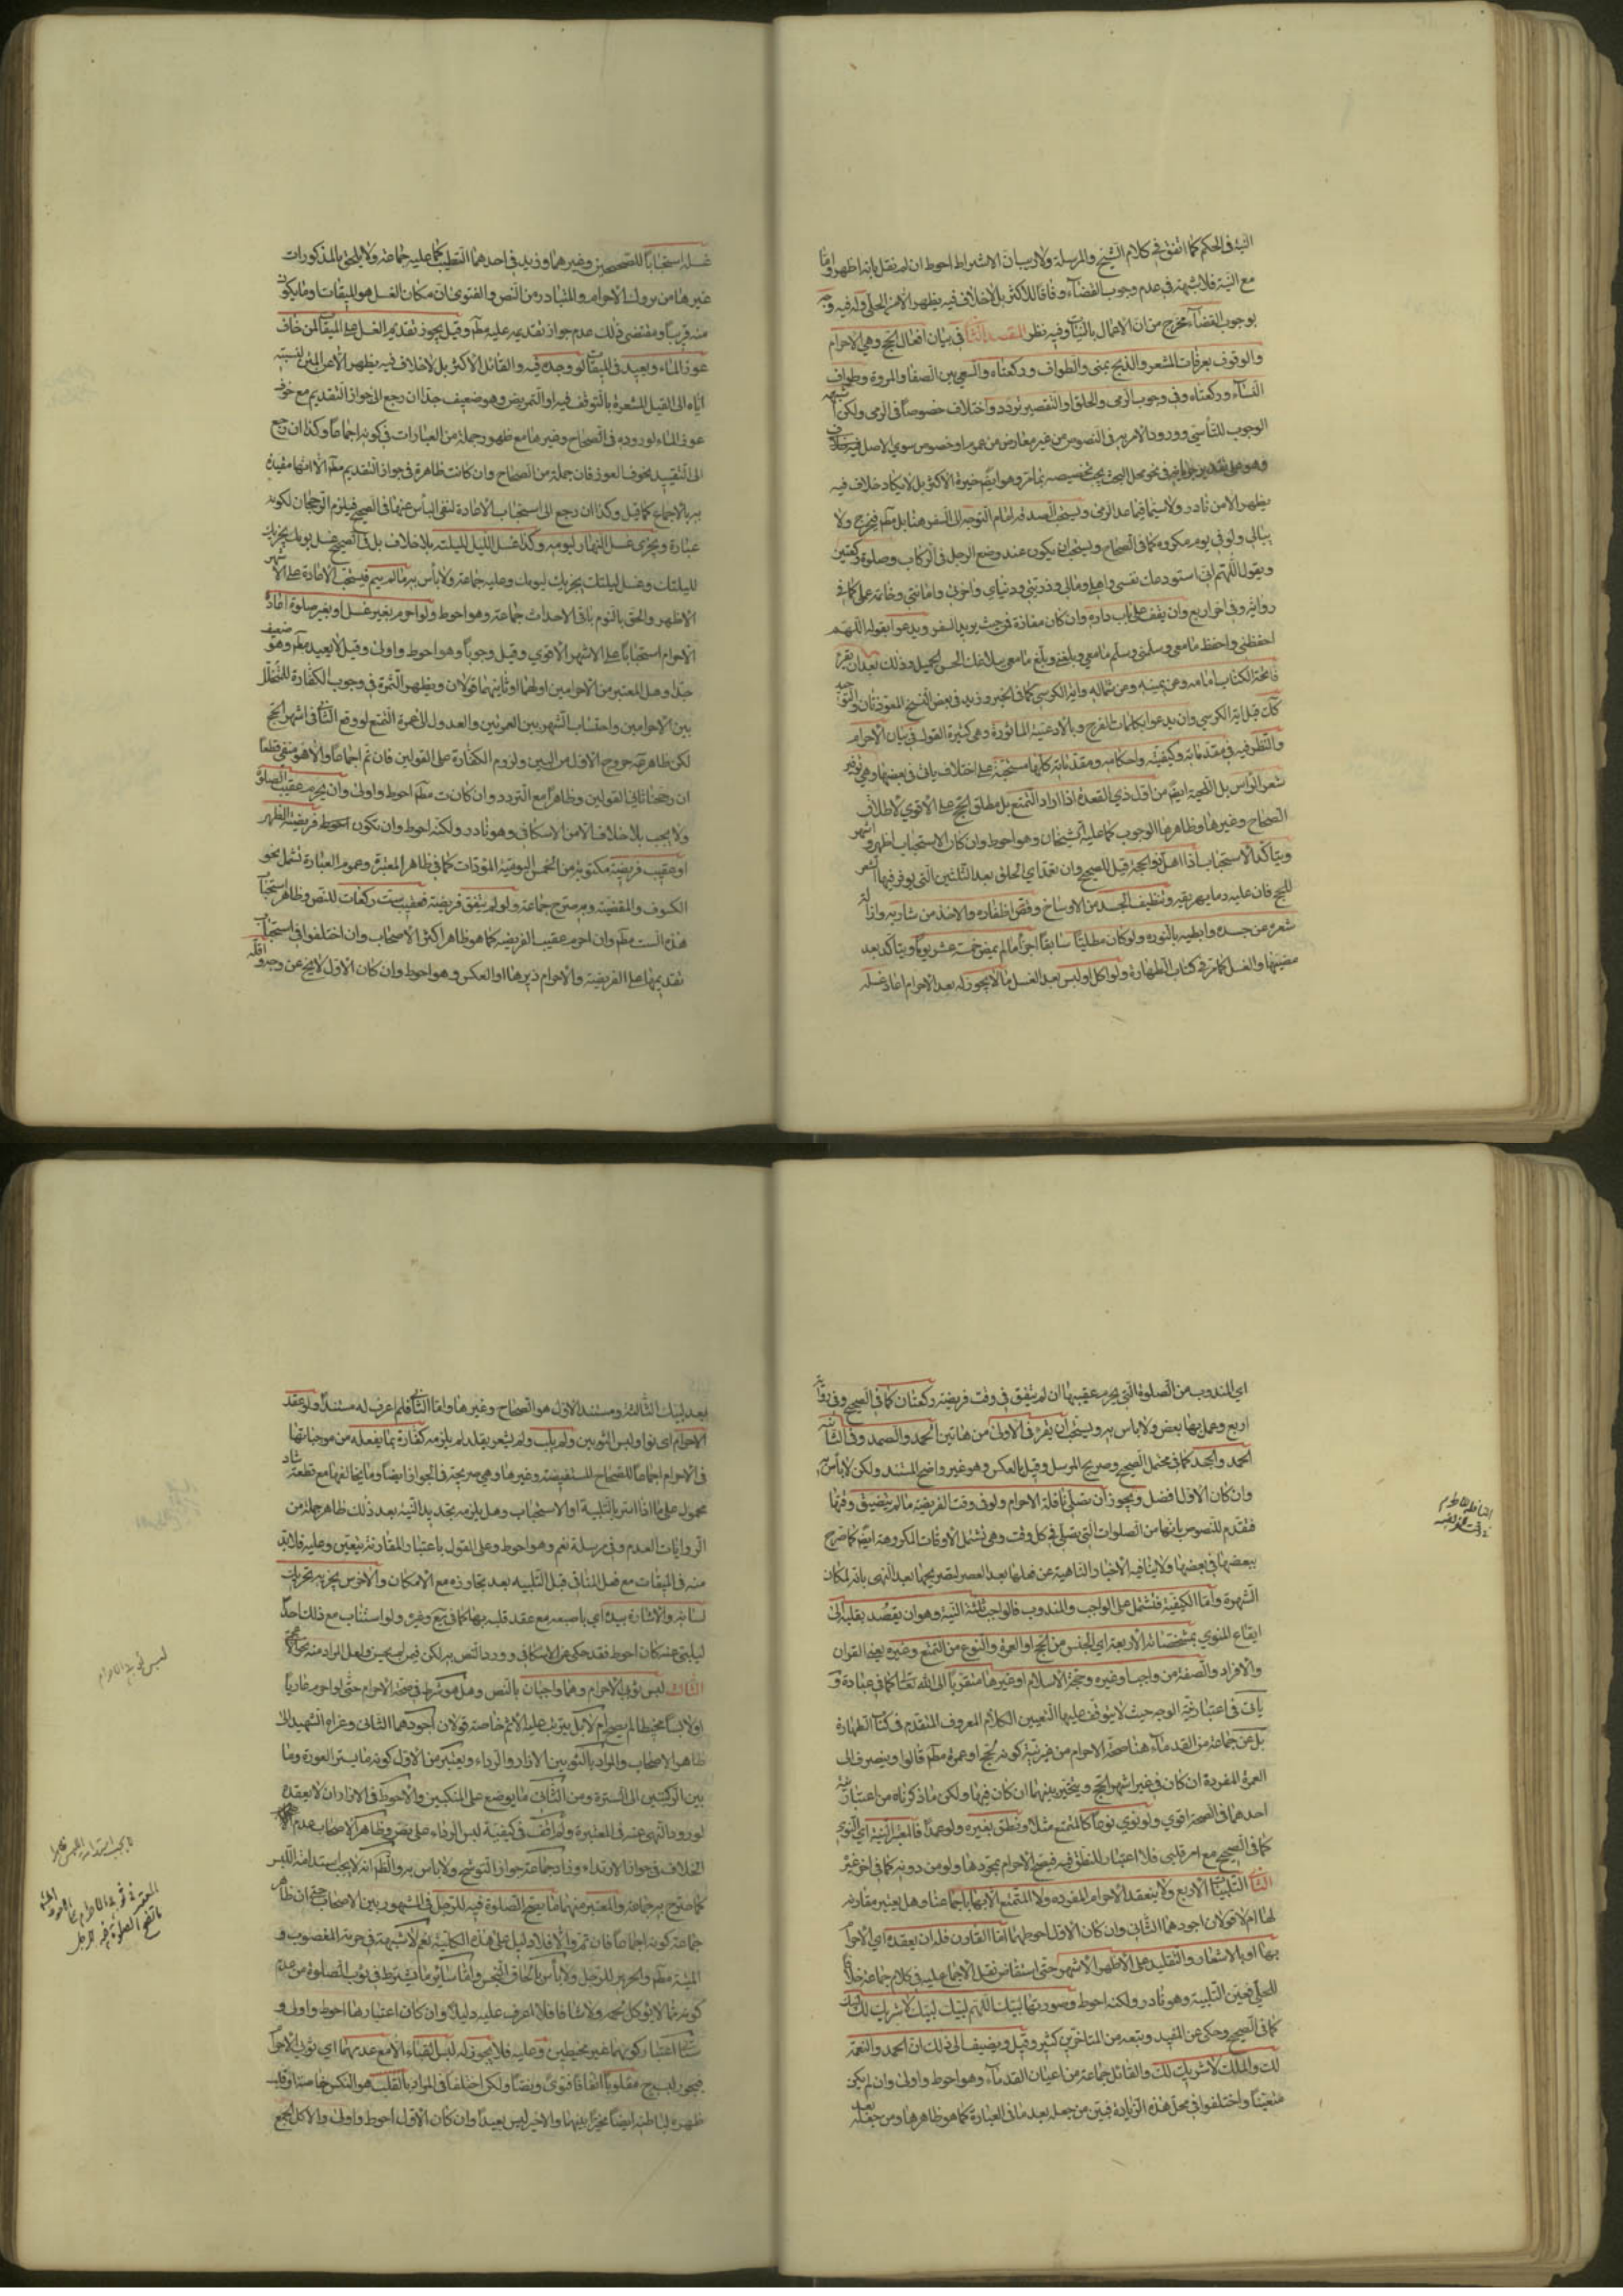 النية في الحكم كما اتفق في كلام الشيخ والمرسلة ولا ريب ان الاشتراط احوط ان لم نقل بانه اظهر واما
مع النية فلا شبهة في عدم وجوب القضاء وفاقا للاكثر بل لا خلاف فيه يظهر الا من الحلي وله فيه وجه
بوجوب القضاء مخرج من ان الاعمال بالنيات وفيه نظر المقصد الثاني في بيان افعال الحج وهي الاحرام
والوقوف بعرفات والمشعر والذبح بمنى والطواف وركعتاه والسعي بين الصفا والمروة وطواف
النساء وركعتاه وفي وجوب الرمي والحلق او التقصير تردد واختلاف خصوصا في الرمي ولكن اشبهه
الوجوب للتأسي وورود الامر به في النصوص من غير معارض من عموم او خصوص سوى الاصل
وهو على تقدير جريانه في نحو محل البحث يجب تخصيصه بما مر وهو ايضا خيرة الاكثر بل لا يكاد خلاف فيه
يظهر الا من نادر ولا سيما فيما عدا الرمي ويستحب الصدقة امام التوجه الى السفر هنا بل مطلقا فيخرج ولا
يبالي ولو في يوم مكروه كما في الصحاح ويستحب ان يكون عند وضع الرجل في الركاب وصلوة ركعتين
ويقول اللهم اني استودعك نفسي واهلي ومالي وذريتي ودنياي واخرتي وامانتي وخاتمة عملي كما في
رواية وفي اخر اربع وان يقف على باب داره وان كان مفازة فمن حيث يريد السفر ويدعو بقوله اللهم
احفظني واحفظ ما معي وسلمني وسلم ما معي وبلغني وبلغ ما معي ببلاغك الحسن الجميل وذلك بعد ان يقرء
فاتحة الكتاب امامه وعن يمينه وعن شماله واية الكرسي كما في الخبر وزيد في بعض النسخ المعوذتان والتوحيد
كل قبل اية الكرسي وان يدعو بكلمات الفرج وبالادعية الماثورة وهي كثيرة القول في بيان الاحرام
والنظر فيه في مقدماته وكيفيته واحكامه ومقدماته كلها مستحبة على اختلاف ياتي في بعضها وهي توفير
شعر الراس بل اللحية ايضا من اول ذي القعدة اذا اراد التمتع بل مطلق الحج على الاقوى لاطلاق
الصحاح وغيرها وظاهرها الوجوب كما عليه الشيخان وهو احوط وان كان الاستحباب اظهر واشهر
ويتاكد الاستحباب اذا اهل ذو الحجة قيل للصحيح وان تعدى الحلق بعد الثلثين التي يوفر فيها الشعر
للحج فان عليه دما يهريقه وتنظيف الجسد من الاوساخ وقص اظفاره والاخذ من شاربه وازالة
شعره عن جسده وابطيه بالنورة ولو كان مطليا سابقا اجزأ ما لم يمض خمسة عشر يوما ويتاكد بعد
مضيها والغسل كما مر في كتاب الطهارة ولو اكل او لبس بعد الغسل ما لا يجوز له بعد الاحرام اعاد غسله
غسله استحبابا للصحيحين وغيرهما وزيد في احدهما التطيب كما عليه جماعة ولا يلحق بالمذكورات
غيرها من تروك الاحرام والمتبادر من النص والفتوى ان مكان الغسل هو الميقات او ما يكون
منه قريبا ومقتضى ذلك عدم جواز تقديمه عليه مطلقا وقيل يجوز تقديم الغسل على الميقات لمن خاف
عوز الماء ويعيد في الميقات لو وجده فيه والقائل الاكثر بل لا خلاف فيه يظهر الا من المتن لنسبته
اياه الى القيل المشعرة بالتوقف فيه او التمريض وهو ضعيف جدا ان رجع الى جواز التقديم مع خوف
عوز الماء لوروده في الصحاح وغيرها مع ظهور جملة من العبارات في كونه اجماعا وكذا ان رجع
الى التقييد بخوف العوز فان جملة من الصحاح وان كانت ظاهرة في جواز التقديم مطلقا الا انها مقيدة
به بالاجماع كما قيل وكذا ان رجع الى استحباب الاعادة لنفي البأس عنها في الصحيح فيلزم الرجحان لكونه
عبادة ويجزي غسل النهار ليومه وكذا غسل الليل لليلته بلا خلاف بل في الصحيح غسل يومك يجزيك
لليلتك وغسل ليلتك يجزيك ليومك وعليه جماعة ولا بأس به ما لم ينم فيستحب الاعادة على الاشهر
الاظهر والحق بالنوم باقي الاحداث جماعة وهو احوط ولو احرم بغير غسل او بغير صلوة اعاد
الاحرام استحبابا على الاشهر الاقوى وقيل وجوبا وهو احوط واولى وقيل لا يعيد مطلقا وهو ضعيف
جدا وهل المعتبر من الاحرامين اولهما او ثانيهما قولان ويظهر الثمرة في وجوب الكفارة للمتخلل
بين الاحرامين واحتساب الشهر بين العمرتين والعدول الى عمرة التمتع لو وقع الثاني في اشهر الحج
لكن ظاهر خروج الاول من البين ولزوم الكفارة على القولين فان تم اجماعا والا هو منفي قطعا
ان رجحنا ثاني القولين وظاهرا مع التردد وان كانت مطلقا احوط واولى وان يحرم عقيب الصلوة
ولا يجب بلا خلاف الا من الاسكافي وهو نادر ولكنه احوط وان تكون فريضة الظهر
او عقيب فريضة مكتوبة من الخمس اليومية المؤداة كما في ظاهر المعتبرة وعموم العبارة تشمل نحو
الكسوف والمقضية وبه صرح جماعة ولو لم يتفق فريضة فعقيب ست ركعات للنص وظاهر استحباب
هذه الست مطلقا وان احرم عقيب الفريضة كما هو ظاهر اكثر الاصحاب وان اختلفوا في استحباب
تقديمها على الفريضة والاحرام دبرها او العكس وهو احوط وان كان الاول لا يخ عن وجه واقله
اي المندوب من الصلوة التي يحرم عقيبها ان لم يتفق في وقت فريضة ركعتان كما في الصحيح وفي رواية
اربع وعمل بها بعض ولا باس به ويستحب ان يقرء في الاولى من هاتين الحمد والصمد وفي الثانية
الحمد والجحد كما في محتمل الصحيح وصريح المرسل وقيل بالعكس وهو غير واضح المستند ولكن لا بأس به
وان كان الاول افضل ويجوز ان يصلي نافلة الاحرام ولو في وقت الفريضة ما لم يتضيق وقتها
فتقدم للنصوص بانها من الصلوات التي تصلى في كل وقت وهي تشمل الاوقات المكروهة ايضا كما صرح
ببعضها في بعضها ولا ينافيه الاخبار الناهية عن فعلها بعد العصر لتصريحها بعد النهي بانه لمكان
الشهرة واما الكيفية فتشمل على الواجب والمندوب فالواجب ثلثة النية وهو ان يقصد بقلبه الى
ايقاع المنوي بمشخصاته الاربعة اي الجنس من الحج او العمرة والنوع من التمتع وغيره يعني القران
والافراد والصفة من واجب او غيره وحجة الاسلام او غيرها متقربا الى الله تعالى كما في عبادة و
ياتي في اعتبار نية الوجه حيث لا يتوقف عليها التعيين الكلام المعروف المتقدم في كتاب الطهارة
بل عن جماعة من القدماء هنا صحة الاحرام من غير نية كونه لحج او عمرة مطلقا قالوا وينصرف الى
العمرة المفردة ان كان في غير اشهر الحج ويتخير بينهما ان كان فيها ولكن ما ذكرناه من اعتبار نية
احدهما في الصحة اقوى ولو نوى نوعا كالتمتع مثلا ونطق بغيره ولو عمدا فالمعتبر النية اي المنوي
كما في الصحيح مع امر قلبي فلا اعتبار للنطق فيه فيصح الاحرام بمجردها ولو من دونه كما في اخر غيره
الثاني التلبيات الاربع ولا ينعقد الاحرام المفرده ولا المتمتع الا بها باجماعنا وهل يعتبر مقارنته
لها ام لا قولان اجودهما الثاني وان كان الاول احوطهما اما القارن فله ان يعقده اي الاحرام
بها او بالاشعار والتقليد على الاظهر الاشهر حتى استفاض نقل الاجماع عليه في كلام جماعة خلافا
للحلي فعين التلبية وهو نادر ولكنه احوط وصورتها لبيك اللهم لبيك لبيك لا شريك لك لبيك
كما في الصحيح وحكي عن المفيد وتبعه من المتاخرين كثير وقيل ويضيف الى ذلك ان الحمد والنعمة
لك والملك لا شريك لك والقائل جماعة من اعيان القدماء وهو احوط واولى وان لم يكن
متعينا واختلفوا في محل هذه الزيادة فبين من جعله بعد ما في العبارة كما هو ظاهرها ومن جعله بعد
النافلة للاحرام
بعد لبيك الثالثة ومستند الاول هو الصحاح وغيرها واما الثاني فلم اعرف له مستندا ولو عقد
الاحرام اي نوى ولبس الثوبين ولم يلب ولم يشعر ولم يقلد لم يلزمه كفارة بما يفعله من موجباتها
في الاحرام اجماعا للصحاح المستفيضة وغيرها وهي صريحة في الجواز ايضا وما يخالفها مع قطعه شاذ
محمول على ما اذا استر بالتلبية او الاستحباب وهل يلزمه تجديد النية بعد ذلك ظاهر جملة من
الروايات العدم وفي مرسلة نعم وهو احوط وعلى القول باعتبار المقارنة يتعين وعليه فلا بد
منه في الميقات مع فعل المنافي قبل التلبيه بعد تجاوزه مع الامكان والاخرس يجزيه تحريك
لسانه والاشارة بيده اي باصبعه مع عقد قلبه بها كما في قوي وغيره ولو استناب مع ذلك احدا
ليلبي عنه كان احوط فقد حكي عن الاسكافي وورد النص به لكن فيمن لم يحسن ولعل المراد منه
الثالث لبس ثوبي الاحرام وهما واجبان بالنص وهل هو شرط في صحة الاحرام حتى لو احرم عاريا
او لابسا مخيطا لم يصح ام لا بل يترتب عليه الاثم خاصة قولان اجودهما الثاني وعزاه الشهيد الى
ظاهر الاصحاب والمراد بالثوبين الازار والرداء ويعتبر من الاول كونه ما يستر العورة وما
بين الركبتين الى السترة ومن الثاني ما يوضع على المنكبين والاحوط في الازار ان لا يعقده
لورود النهي عنه في المعتبرة ولم اقف في كيفية لبس الرداء على نص وظاهر الاصحاب عدم
الخلاف في جواز الارتداء وزاد جماعة جواز التوشح ولا باس به والظاهر انه لا يجب استدامة اللبس
كما صرح به جماعة والمعتبر منهما ما يصح الصلوة فيه للرجل في المشهور بين الاصحاب حتى ان ظاهر
جماعة كونه اجماعا فان تم والا فلا دليل على هذه الكلية نعم لا شبهة في حرمة المغصوب و
الميتة مطلقا والحرير للرجل ولا بأس بالحاق النجس واما سائر ما يشترط في ثوب الصلوة من عدم
كونه مما لا يؤكل لحمه ولا شافا فلا اعرف عليه دليلا وان كان اعتبارها احوط واولى و
اعتبار كونهما غير مخيطين وعليه فلا يجوز له لبس القباء الا مع عدمهما اي ثوبي الاحرام
فيجوز لبسه مقلوبا اتفاقا فتوى ونصا ولكن اختلفا في المراد بالقلب هو النكس خاصة او قلب
ظهره لباطنه ايضا مخيرا بينهما والاخير ليس بعيدا وان كان الاول احوط واولى والاكمل الجمع
لبس ثوبي الاحرام